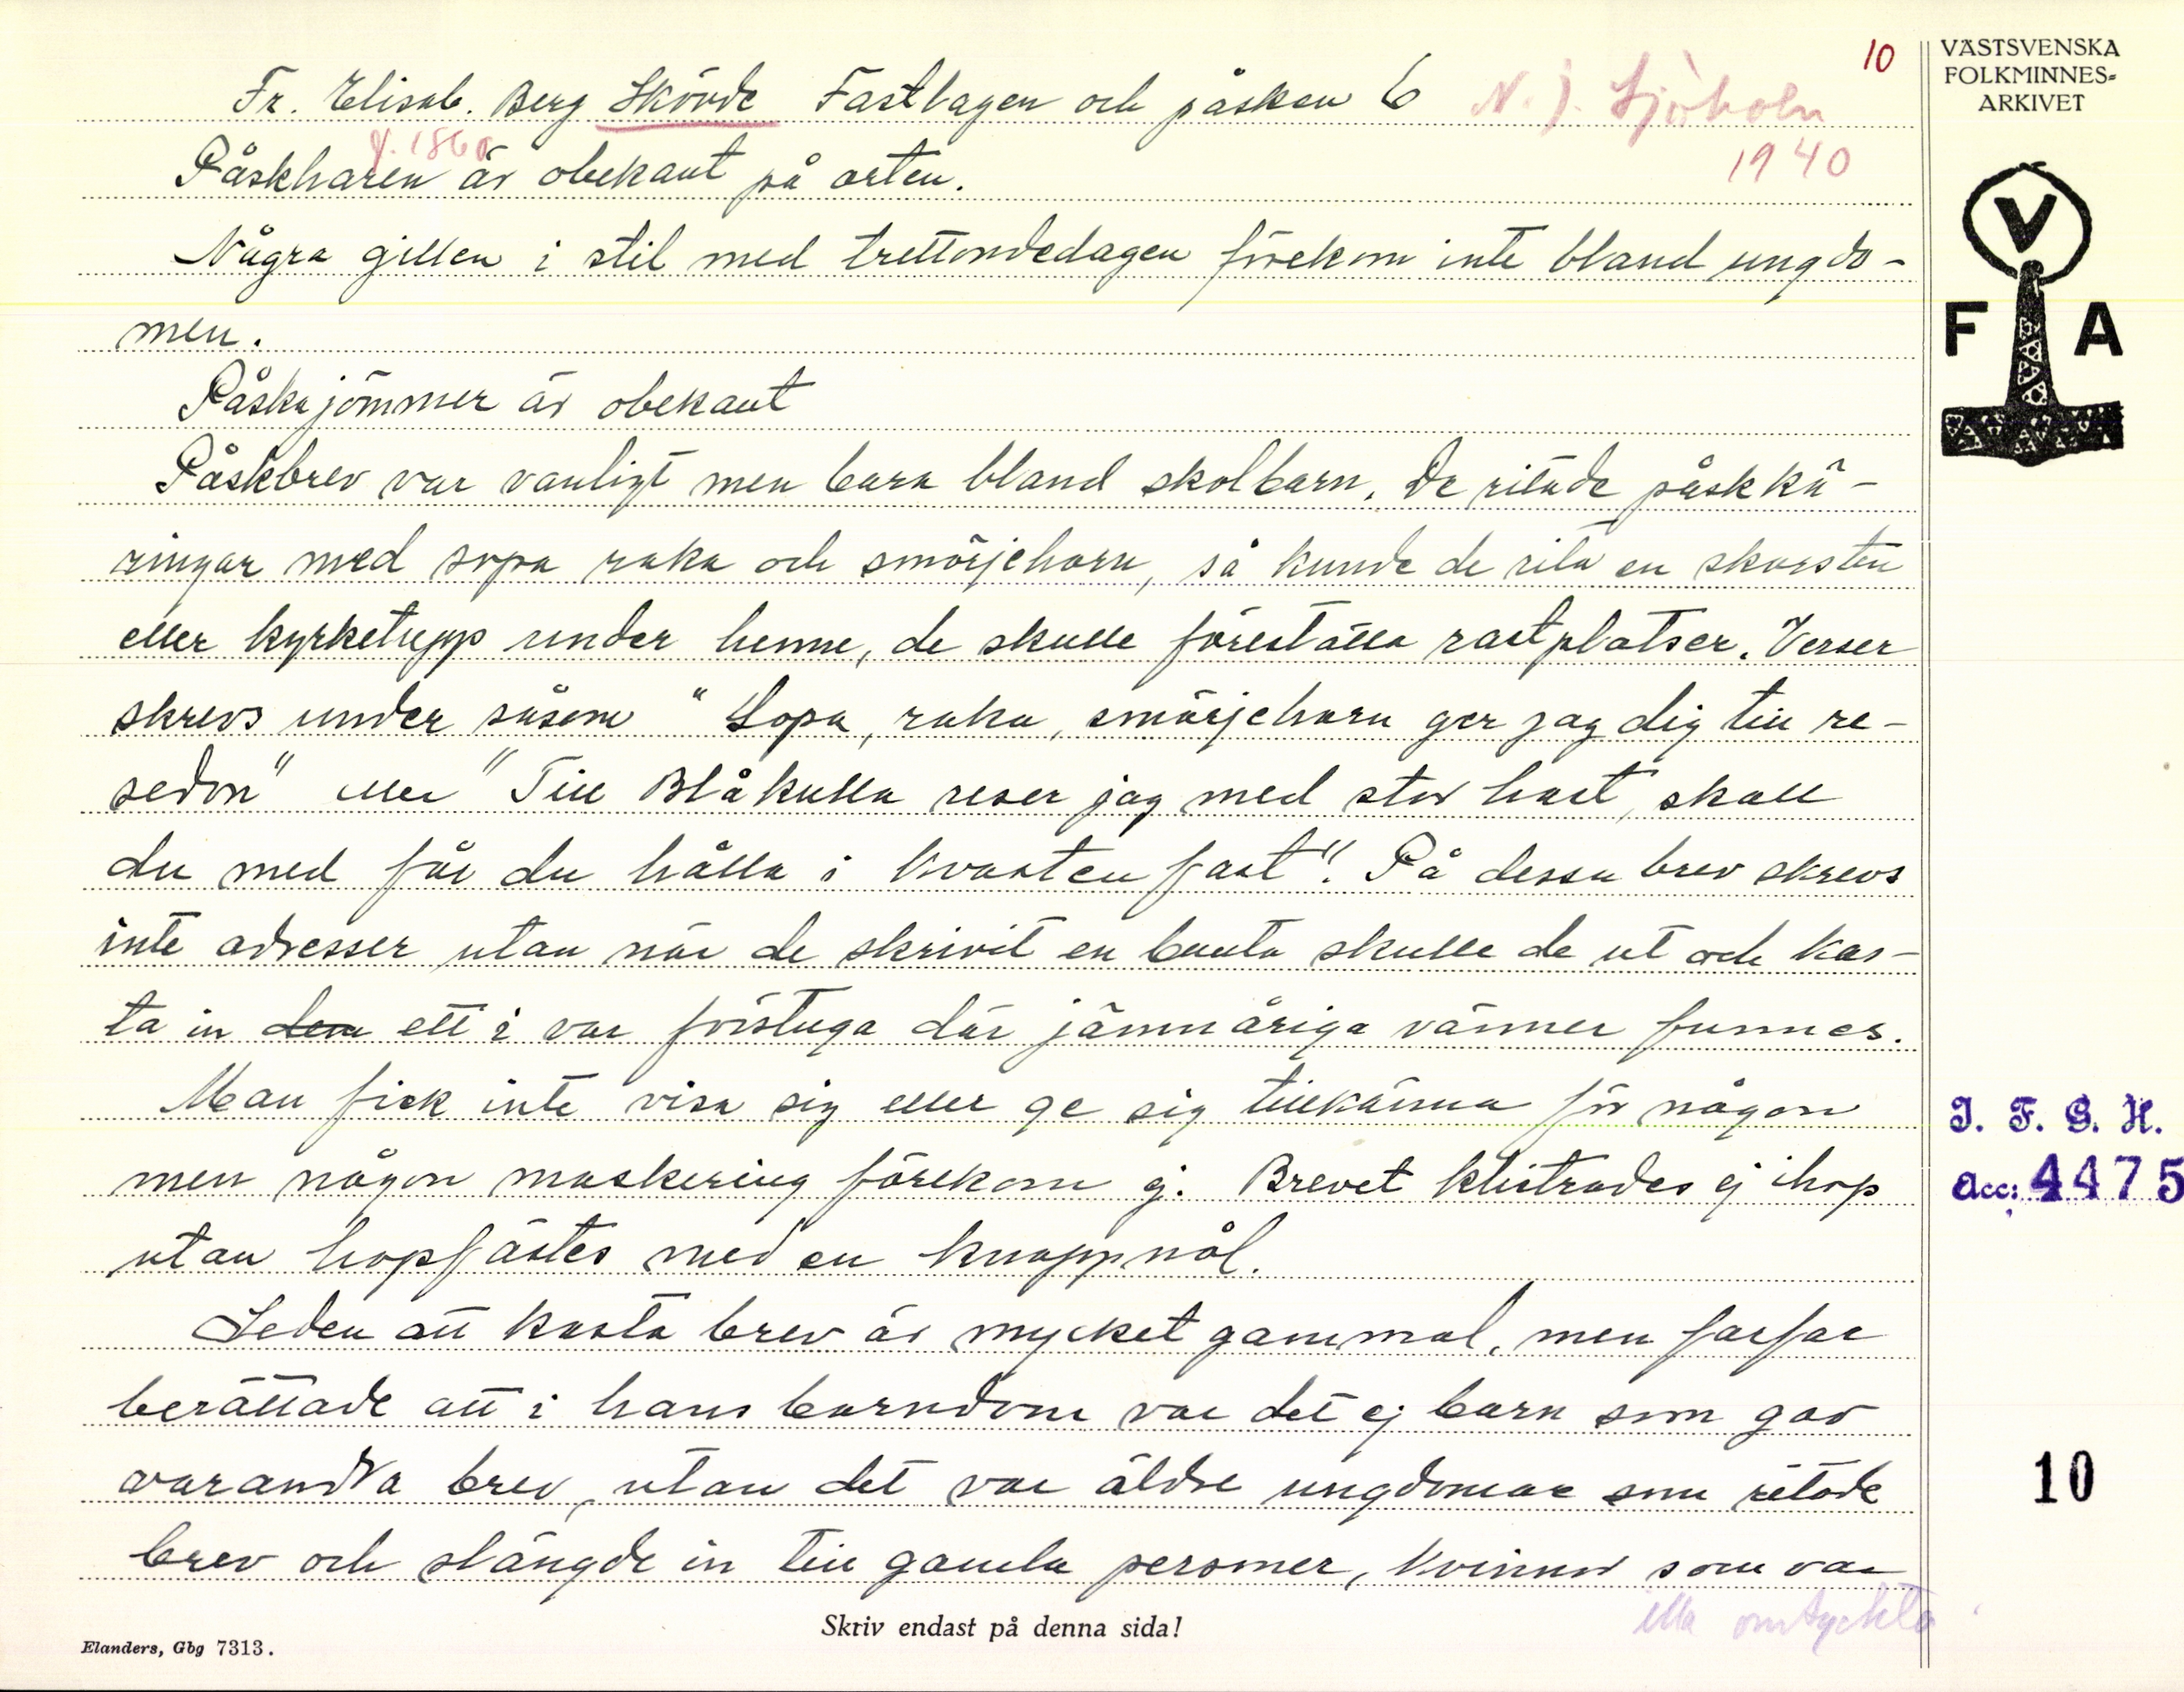 10
VÄSTSVENSKA
FOLKMINNES-
ARKIVET
Fr. Elisab. Berg Skövde Fastlagen och påsken 6 N. J. Sjöholm
f. 1860 1940
Påskharen är obekant på orten.
Några gillen i stil med trettondedagen förekom inte bland ungdo-
men.
V
F A
Påskajömmer är obekant
Påskbrev var vanligt men bara bland skolbarn. De ritade påskkä-
ringar med sopa raka och smörjehorn, så kunde de rita en skorsten
eller kyrketupp under henne, de skulle föreställa rastplatser. Verser
skrevs under såsom "Sopa, raka, smörjehorn ger jag dig till re-
sedon" eller "Till Blåkulla reser jag med stor hast, skall
du med får du hålla i kvasten fast". På dessa brev skrevs
inte adresser utan när de skrivit en bunta skulle de ut och kas-
ta in dem ett i var förstuga där jämnåriga vänner funnes.
Man fick inte visa sig eller ge sig tillkänna för någon
men någon maskering förekom ej. Brevet klistrades ej ihop
utan hopfästes med en knappnål.
I. F. G. H.
Acc: 4475
Seden att kasta brev är mycket gammal, men farfar
berättade att i hans barndom var det ej barn som gav
varandra brev, utan det var äldre ungdomar som ritade
brev och slängde in till gamla personer, kvinnor som var
illa omtyckta
10
Skriv endast på denna sida!
Elanders, Gbg 7313.